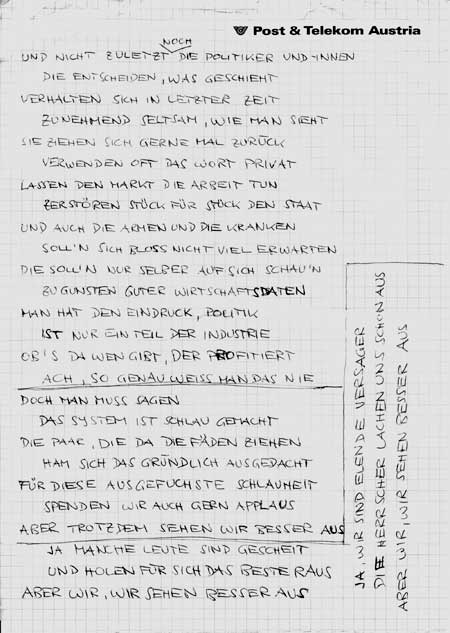 Post & Telekom Austria
NOCH
UND NICHT ZULETZT DIE POLITIKER UND -INNEN
DIE ENTSCHEIDEN, WAS GESCHIEHT
VERHALTEN SICH IN LETZTER ZEIT
ZUNEHMEND SELTSAM, WIE MAN SIEHT
SIE ZIEHEN SICH GERNE MAL ZURÜCK
VERWENDEN OFT DAS WORT PRIVAT
LASSEN DEN MARKT DIE ARBEIT TUN
ZERSTÖREN STÜCK FÜR STÜCK DEN STAAT
UND AUCH DIE ARMEN UND DIE KRANKEN
SOLL'N SICH BLOSS NICHT VIEL ERWARTEN
DIE SOLL'N NUR SELBER AUF SICH SCHAU'N
ZUGUNSTEN GUTER WIRTSCHAFTSDATEN
MAN HAT DEN EINDRUCK, POLITIK
IST NUR EIN TEIL DER INDUSTRIE
OB'S DA WEN GIBT, DER PROFITIERT
ACH, SO GENAU WEISS MAN DAS NIE
DOCH MAN MUSS SAGEN
DAS SYSTEM IST SCHLAU GEMACHT
DIE PAAR, DIE DA DIE FÄDEN ZIEHEN
HAM SICH DAS GRÜNDLICH AUSGEDACHT
FÜR DIESE AUSGEFUCHSTE SCHLAUHEIT
SPENDEN WIR AUCH GERN APPLAUS
ABER TROTZDEM SEHEN WIR BESSER AUS
JA MANCHE LEUTE SIND GESCHEIT
UND HOLEN FÜR SICH DAS BESTE RAUS
ABER WIR, WIR SEHEN BESSER AUS
JA, WIR SIND ELENDE VERSAGER
DIE HERRSCHER LACHEN UNS SCHON AUS
ABER WIR, WIR SEHEN BESSER AUS